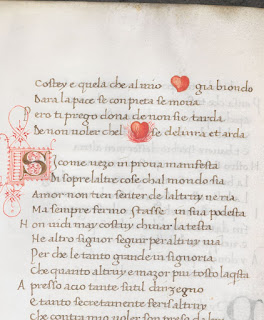 Costey e quela che al mio ❤ gia biondo
Dara la pace se con pieta se mova
Pero ti prego dona de non sie tarda
De non voler chel ❤ se delura et arda
Si come vezo in prova manifesta
Di sopre laltre cose chal mondo sia
Amor non tien senter de laltruy ne ria
Ma sempre fermo stasse in sua podesta
Non vidi may costuy chinar la testa
He altro signor seguir per altruy via
Per che le tanto grande in signoria
Che quanto altruy e mazor piu tosto
Apresso a cio tante sutil dinzegno
E tanto secretamente feris altruy
Che contra mio voler son preso